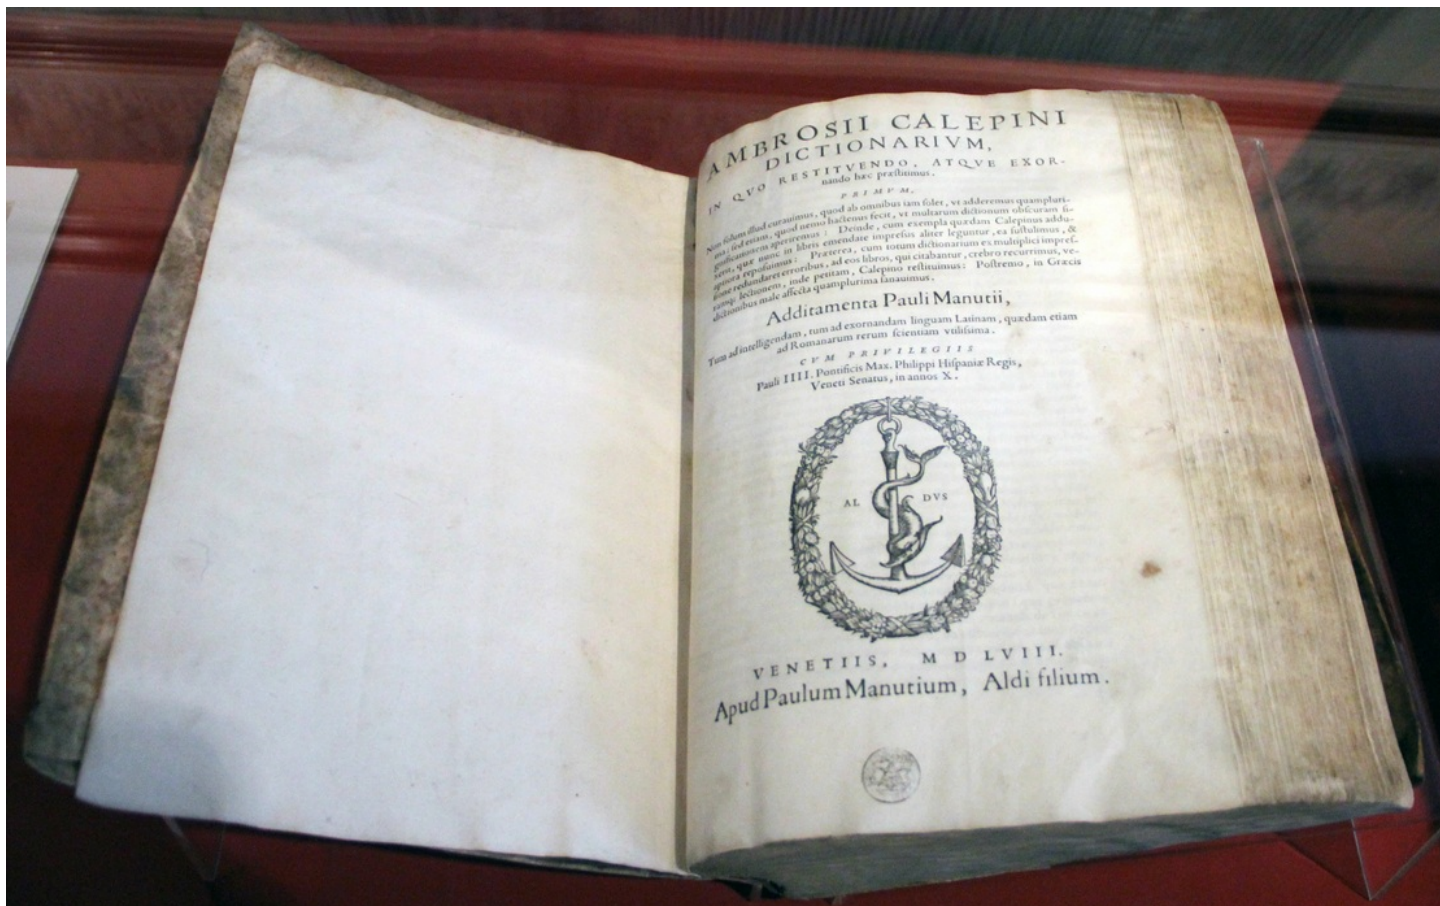 AMBROSII CALEPINI
DICTIONARIVM,
IN QVO RESTITVENDO, ATQVE EXOR-
nando hæc præstitimus.
PRIMVM,
Non solum illud curauimus, quod ab omnibus iam solet, vt adderemus quampluri-
ma; sed etiam, quod nemo hactenus fecit, vt multarum dictionum obscuram si-
gnificationem aperiremus: Deinde, cum exempla quædam Calepinus addu-
xerit, quæ nunc in libris emendate impressis aliter leguntur, ea sustulimus, &
aptiora reposuimus: Præterea, cum totum dictionarium ex multiplici impres-
sione redundaret erroribus, ad eos libros, qui citabantur, crebro recurrimus, ve-
ramq; lectionem, inde petitam, Calepino restituimus: Postremo, in Græcis
dictionibus male affecta quamplurima sanauimus.
Additamenta Pauli Manutii,
Tum ad intelligendam, tum ad exornandam linguam Latinam, quædam etiam
ad Romanarum rerum scientiam vtilissima.
CVM PRIVILEGIIS
Pauli IIII. Pontificis Max. Philippi Hispaniæ Regis,
Veneti Senatus, in annos X.
AL DVS
VENETIIS, M D LVIII.
Apud Paulum Manutium, Aldi filium.